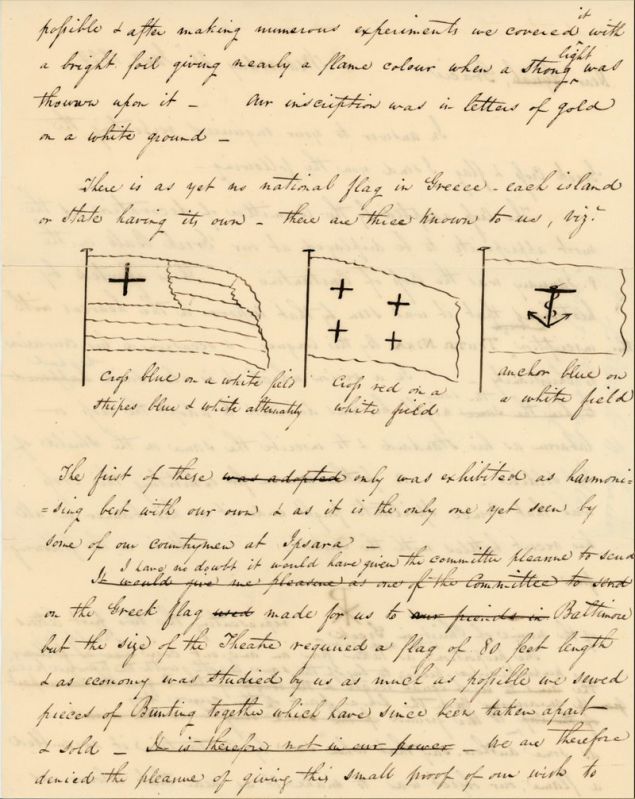 possible & after making numerous experiments we covered it with
a bright foil giving nearly a flame colour when a strong light was
thrown upon it – Our inscription was in letters of gold
on a white ground –
There is as yet no national flag in Greece – each island
or State having its own – there are three known to us, viz.
Cross blue on a white field
stripes blue & white alternately
Cross red on a
white field
anchor blue on
a white field
The first of these was adopted only was exhibited as harmoni=
=sing best with our own & as it is the only one yet seen by
some of our countrymen at Ipsara –
I have no doubt it would have given the committee pleasure to send
It would give me pleasure as one of the Committee to send
on the Greek flag used made for us to our friends in Baltimore
but the size of the Theatre required a flag of 80 feet length
& as economy was studied by us as much as possible we sewed
pieces of Bunting together which have since been taken apart
& sold – It is therefore not in our power – We are therefore
denied the pleasure of giving this small proof of our wish to